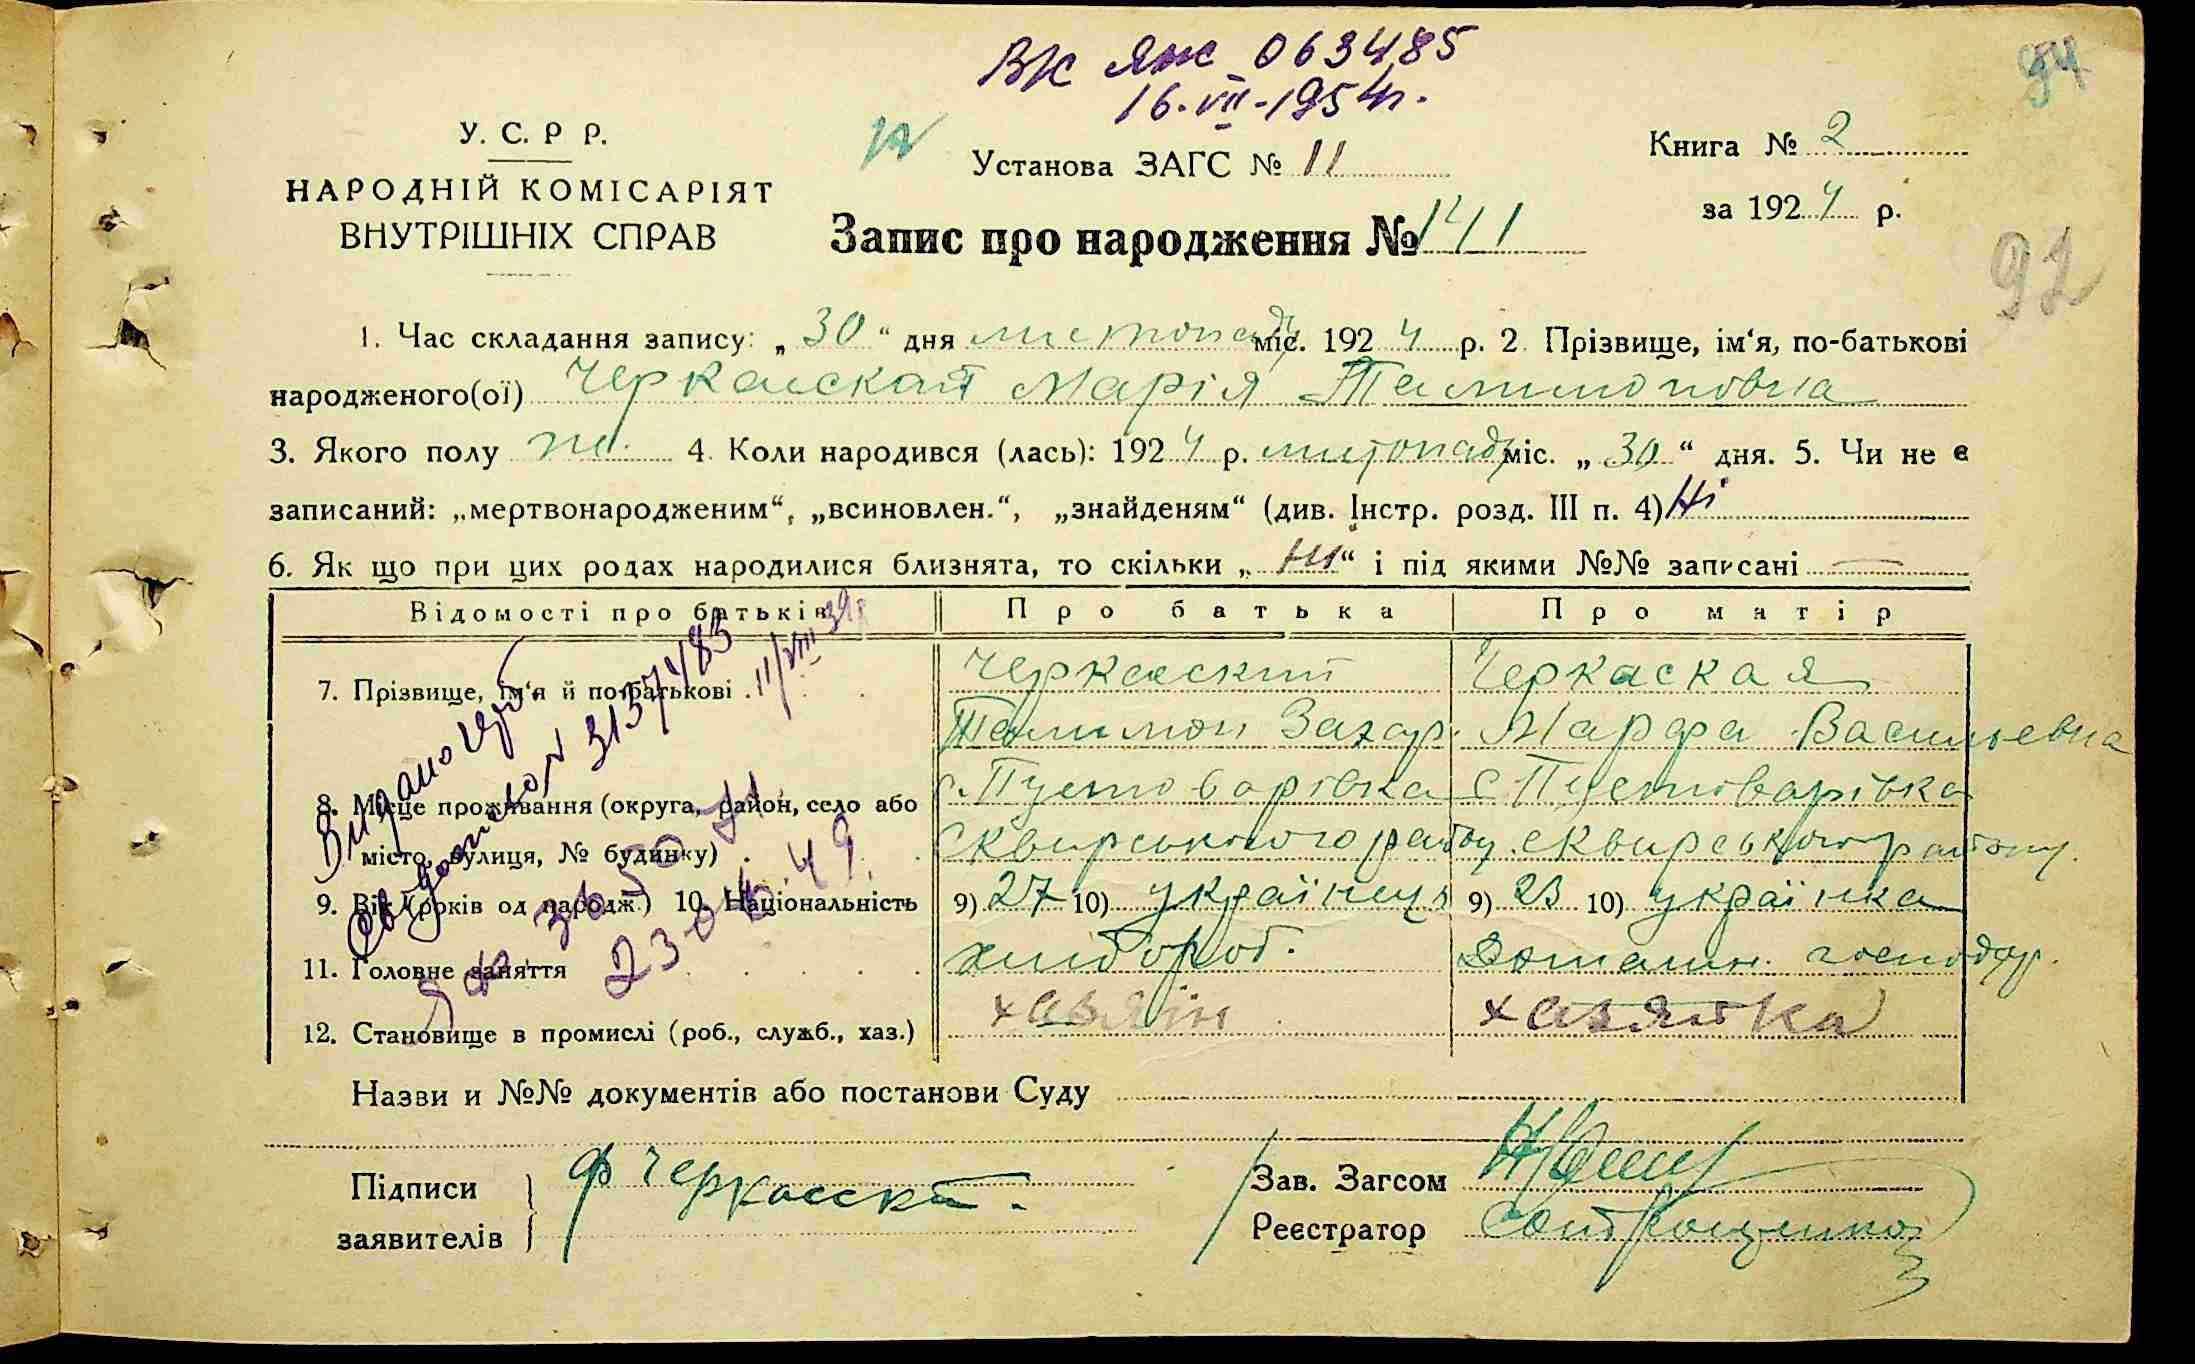 ВК ЯЖ 063485
16.VII-1954р.
94
У. С. Р Р.
НАРОДНІЙ КОМІСАРІЯТ
ВНУТРІШНІХ СПРАВ
Установа ЗАГС № 11
Книга № 2
за 1924 р.
Запис про народження № 141
92
1. Час складання запису: „ 30 “ дня листопаду міс. 1924 р. 2 Прізвище, ім‘я, по-батькові
народженого(ої) Черкаская Марія Талимоновна
3. Якого полу ж. 4. Коли народився (лась): 1924 р. листопаду міс. „ 30 “ дня. 5. Чи не є
записаний: „мертвонародженим“, „всиновлен.“, „знайденям“ (див. Інстр. розд. III п. 4) Ні
6. Як що при цих родах народилися близнята, то скільки „ Ні “ і під якими №№ записані —
Відомості про батьків Про батька Про матір
7. Прізвище, ім‘я й по-батькові Черкаский Черкаская
Талимон Захар. Марфа Васильевна
8. Місце проживання (округа, район, село або с. Пустоварівка с Пустоварівка
місто, вулиця, № будинку) Сквирського району. Сквирського району.
9. Вік (років од народж.) 10. Національність 9) 27 10) українець 9) 23 10) українка
11. Головне заняття хлібороб. Домашн. господар.
12. Становище в промислі (роб., служб., хаз.) хазяїн хазяйка
Видано
11/VIII 39р
23.04.49.
Назви и №№ документів або постанови Суду
Підписи
заявителів
Ф Черкасский.
Зав. Загсом
Реєстратор